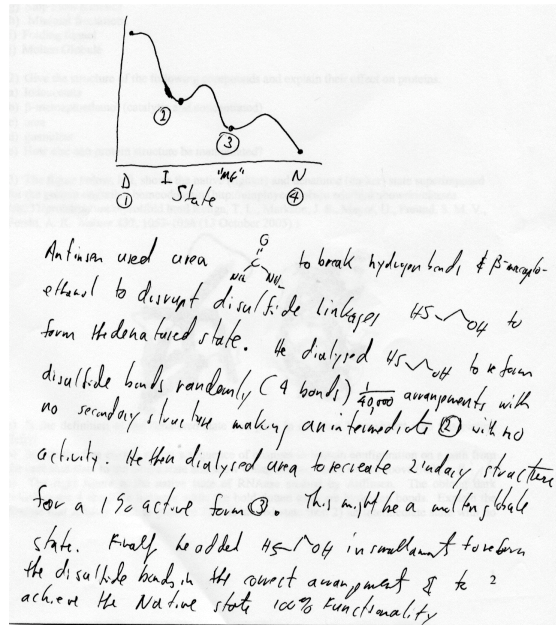 ②
③
D I "MG" N
① State ④
Anfinsen used urea O C NH2 NH2 to break hydrogen bonds & β-mercapto-
ethanol to disrupt disulfide linkages HS OH to
form the denatured state. He dialysed HS OH to reform
disulfide bonds randomly (4 bonds) 1/40,000 arrangements with
no secondary structure making an intermediate ② with no
activity. He then dialysed urea to recreate 2indary structure
for a 1% active form ③. This might be a molten globule
state. Finally he added HS OH in small amount to reform
the disulfide bonds in the correct arrangement & to
achieve the Native state 100% Functionality